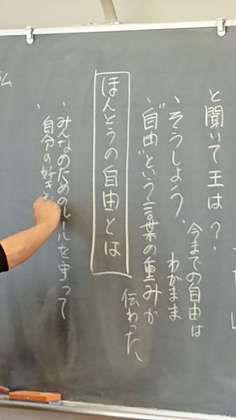 と聞いて王は?
今までの自由は
わがまま
、そうしよう。
、"自由"という言葉の重みが
伝わった。
ほんとうの自由とは
、みんなのためのルールを守って
、自分の好き